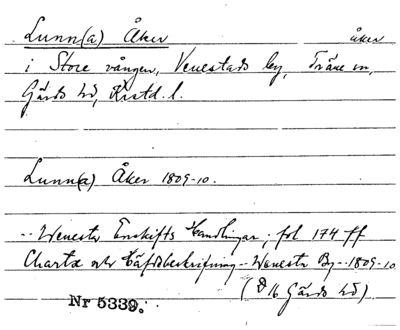 Lunn(a) Åker åker
i Store vången, Venestads by, Träne sn,
Gärds hd, Krstd. l.
Lunn(a) Åker 1809-10.
-- Wenesta Enskifts Handlingar, fol 174 ff
Charta och Häfdbeskrifning -- Wenesta By -- 1809-10
(D 16 Gärds hd)
Nr 5339.